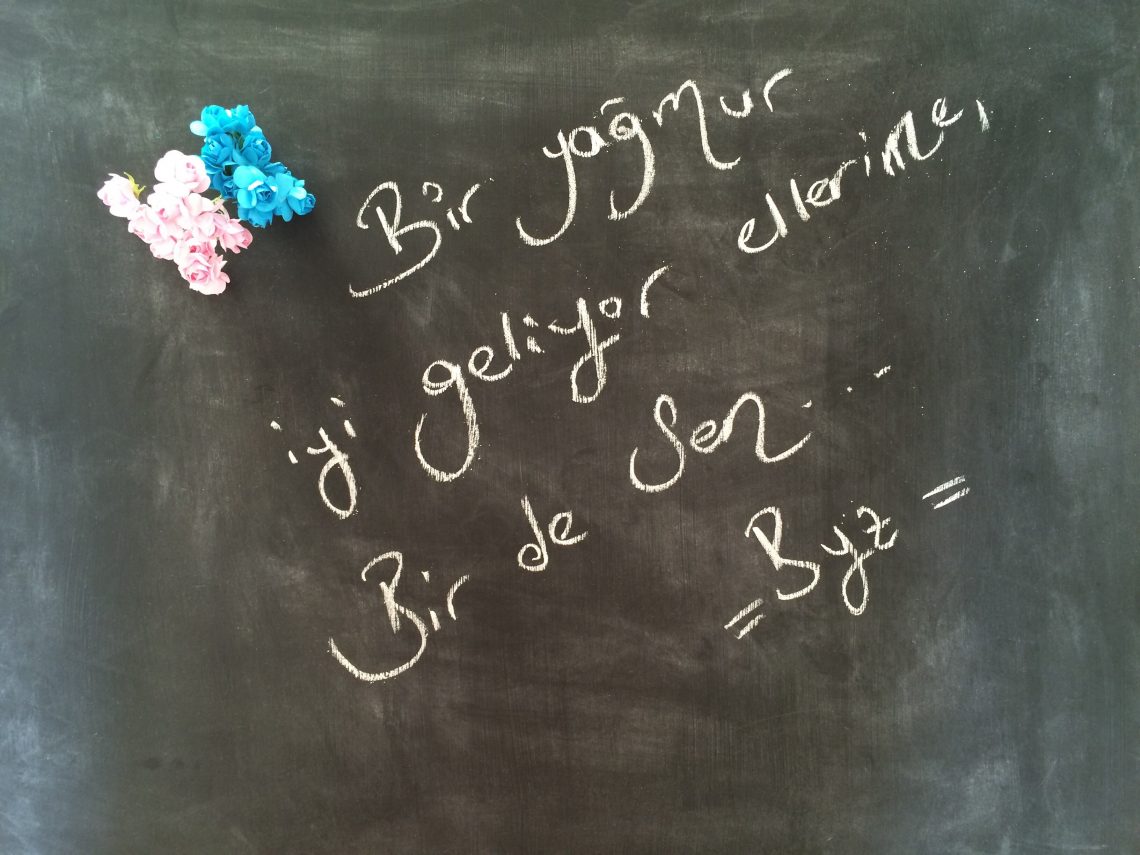 Bir yağmur ellerime,
iyi geliyor
Bir de sen...
=Byz=